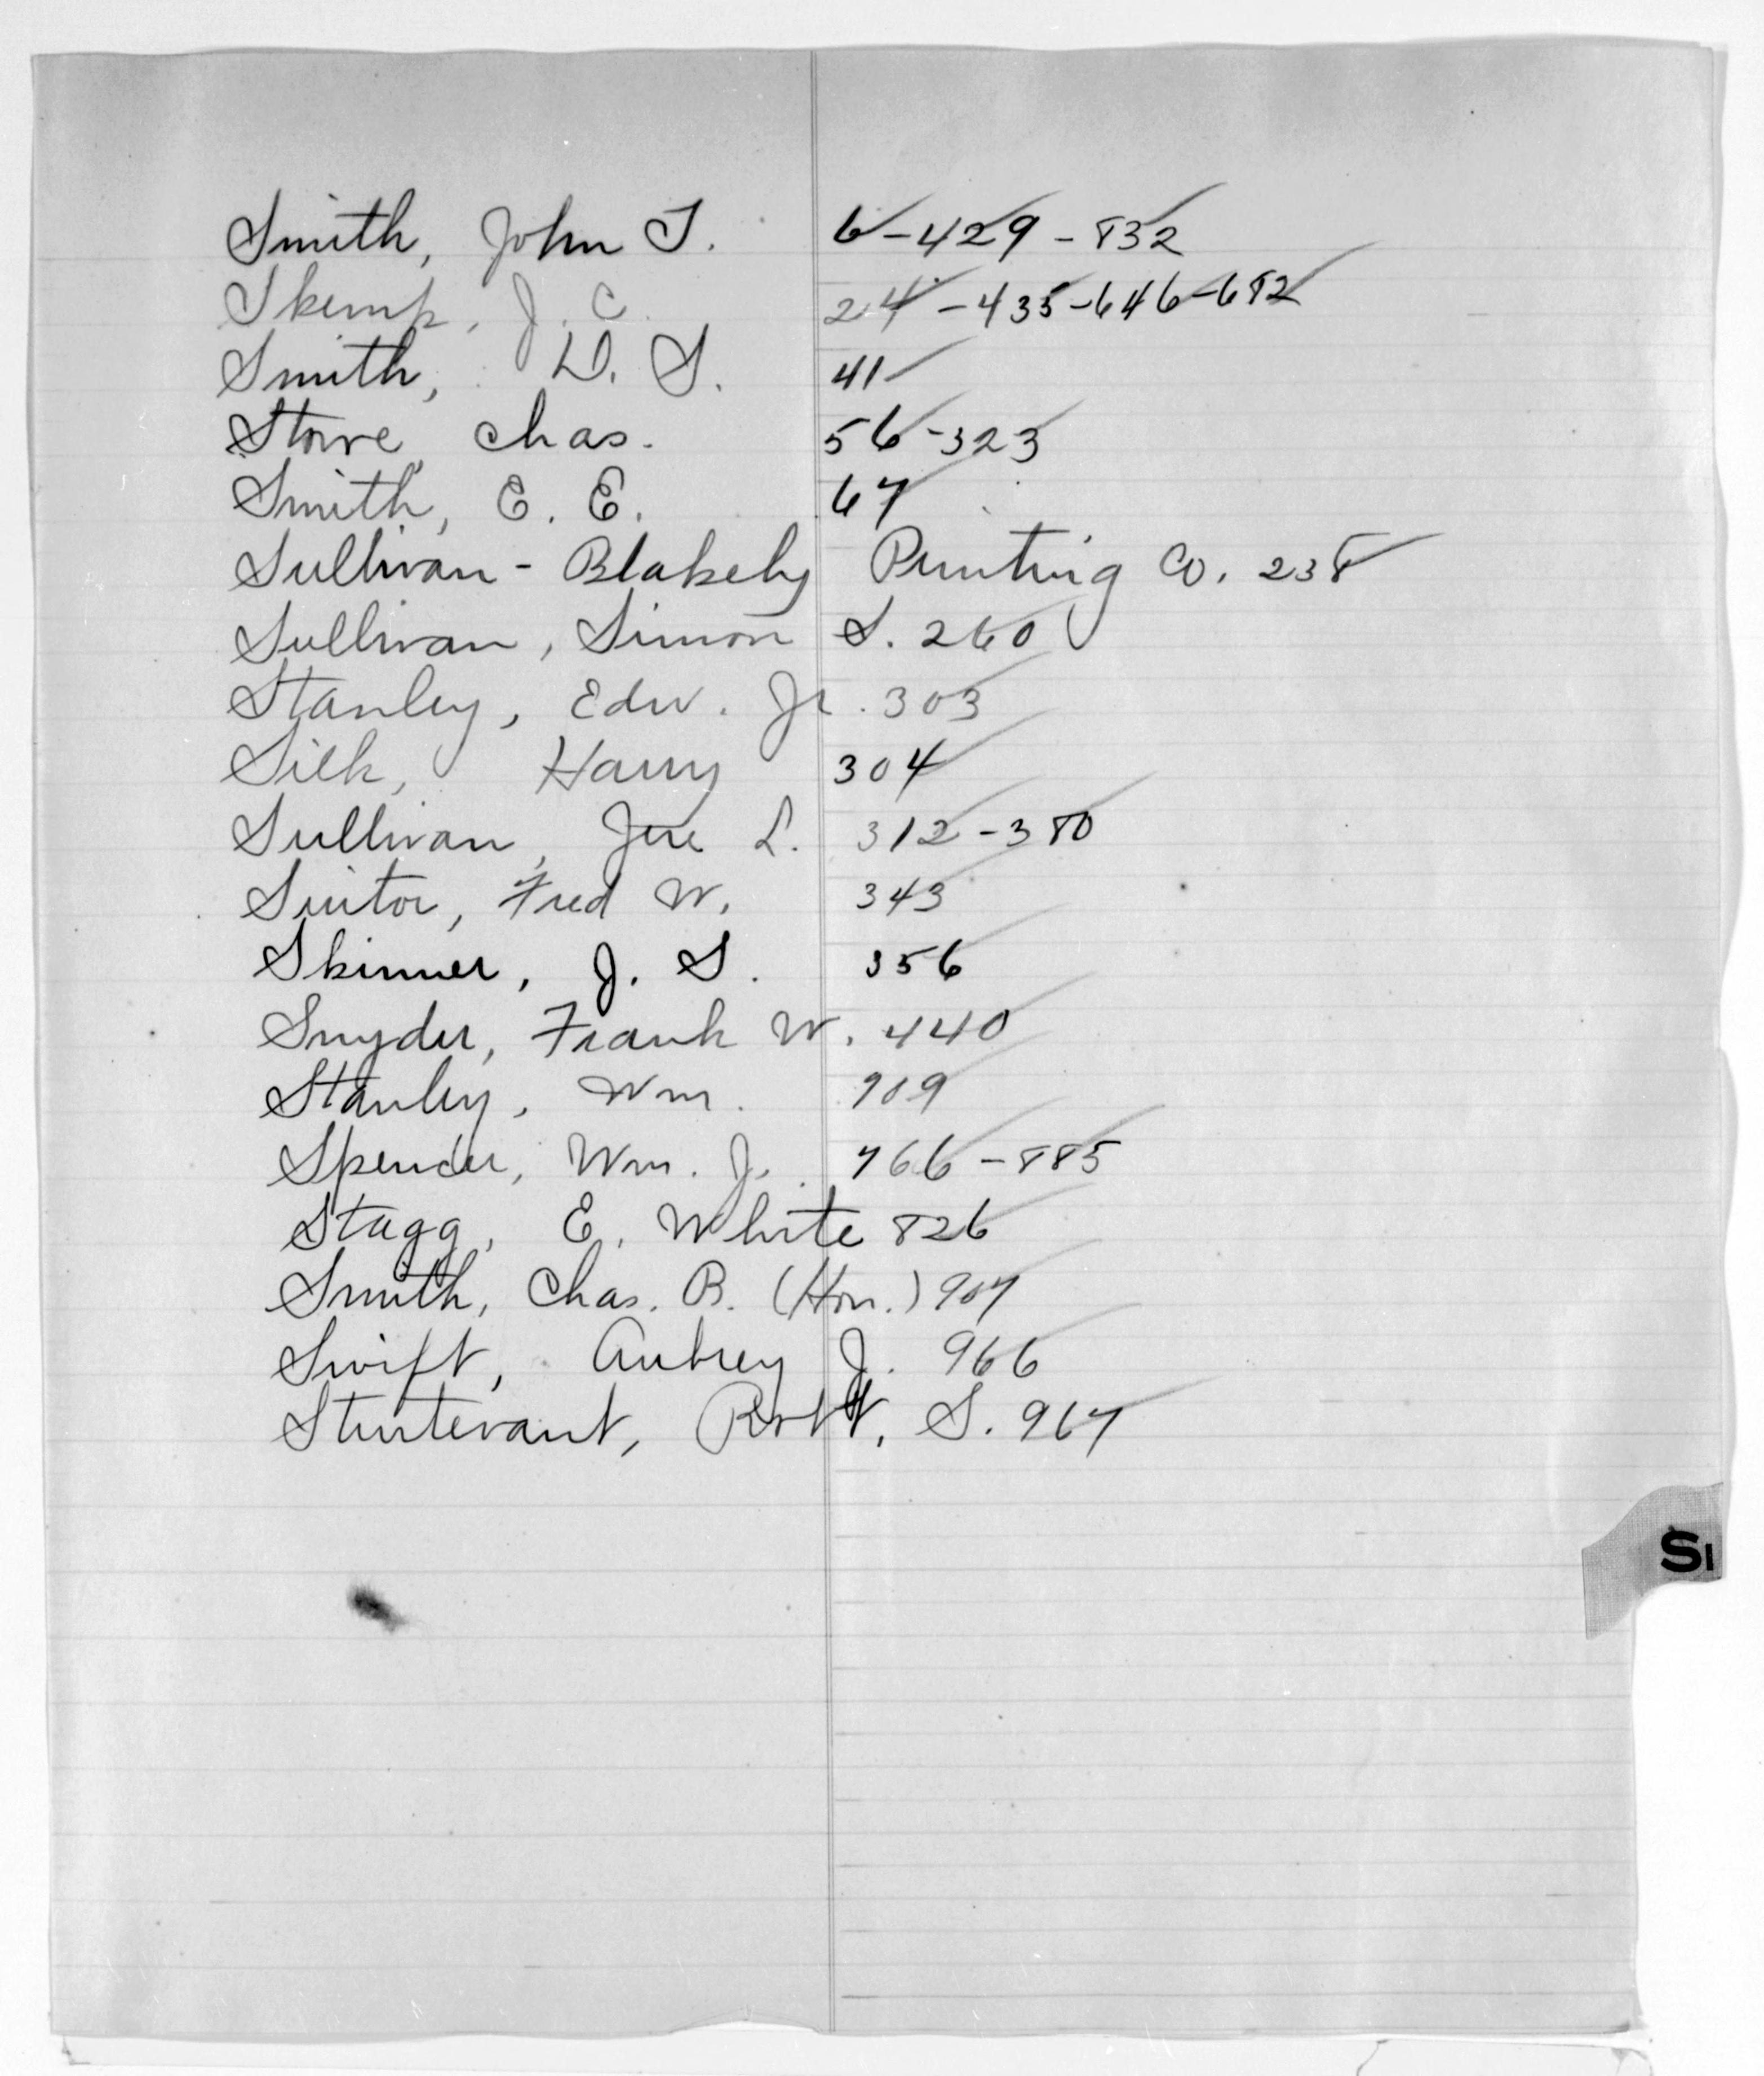 Smith, John T. 6-429-832
Skemp, J. C. 24-435-646-682
Smith, D. S. 41
Stowe, Chas. 56-323
Smith, E. E. 67
Sullivan-Blakely Printing Co. 238
Sullivan, Simon S. 260
Stanley, Edw. Jr. 303
Silk, Harry 304
Sullivan, Jere L. 312-380
Suitor, Fred W. 343
Skinner, J. S. 356
Snyder, Frank W. 440
Stanley, Wm. 709
Spencer, Wm. J. 766-885
Stagg, E. White 826
Smith, Chas. B. (Hon.) 907
Swift, Aubrey J. 966
Sturtevant, Robt. S. 967
S1